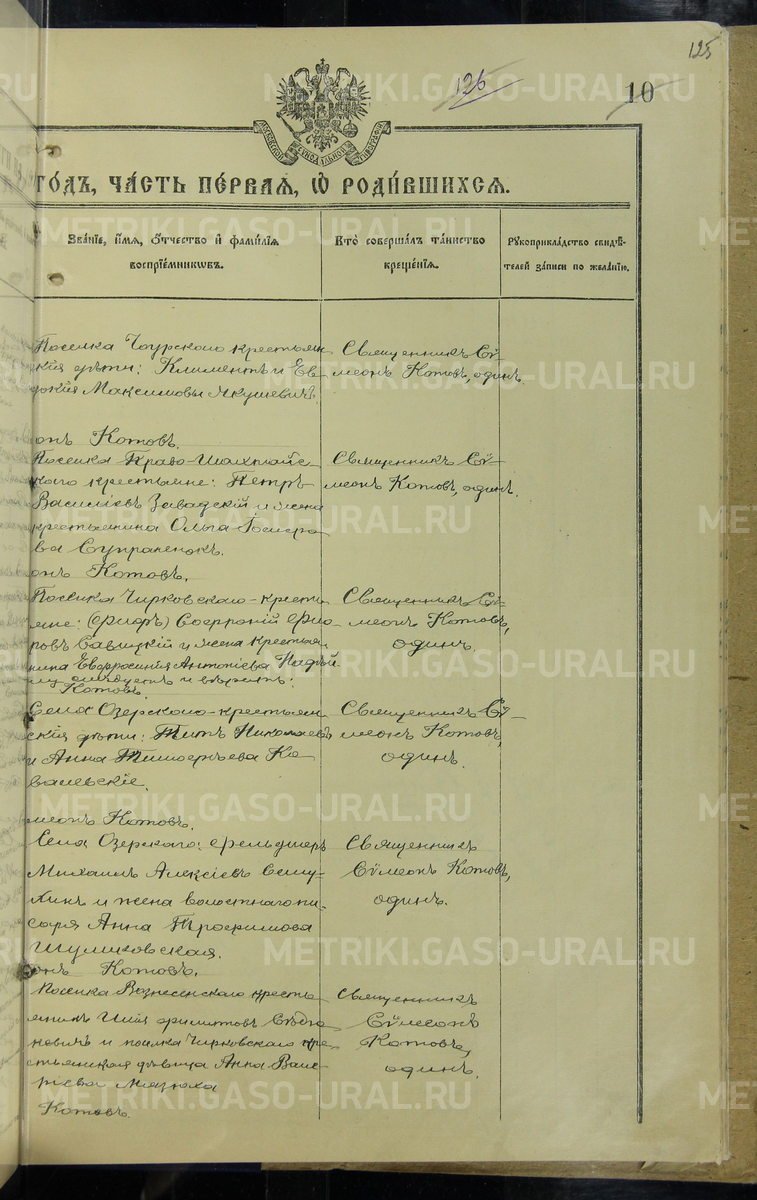 125
126
10
МОСКОВСКОЙ СИНОДАЛЬНОЙ ТИПОГРАФІИ
ГОДЪ, ЧАСТЬ ПЕРВАЯ, Ѡ РОДИВШИХСЯ.
Званіе, имя, отчество и фамилія воспріемниковъ.
Кто совершалъ таинство крещенія.
Рукоприкладство свидѣтелей записи по желанію.
Поселка Чаурскаго крестьян
скія дѣти: Климентъ и Ев
докія Максимовы Якушевичъ
Священникъ Сѵ
меонъ Котовъ, одинъ
онъ Котовъ.
Поселка Право-
каго крестьяне: Петръ
Василіевъ Завадскій и жена
крестьянина Ольга
ва Супраненокъ.
Священникъ Сѵ
меонъ Котовъ, одинъ.
онъ Котовъ.
Поселка Чирковскаго - кресть
яне: Софроній
повъ Савицкій и жена крестья
нина Евфросинія Антоніева
Священникъ Сѵ-
меонъ Котовъ,
одинъ.
Котовъ.
Села Озерскаго - крестьян
скія дѣти: Титъ Николаевъ
и Анна Тимофѣева Ко
валевскіе.
Священникъ Сѵ-
меонъ Котовъ,
одинъ.
меонъ Котовъ.
Села Озерскаго: фельдшеръ
Михаилъ Алексіевъ
и жена волостнаго пи
саря Анна Трофимова
Шулиховская.
Священникъ
Сѵмеонъ Котовъ,
одинъ.
онъ Котовъ.
Поселка Вознесенскаго кресть
янинъ Илія Филиповъ
новичъ и поселка Чирковскаго кре
стьянская дѣвица Анна Вале
ріева Мазюха
Священникъ
Сѵмеонъ
Котовъ,
одинъ.
Котовъ.
METRIKI.GASO-URAL.RU